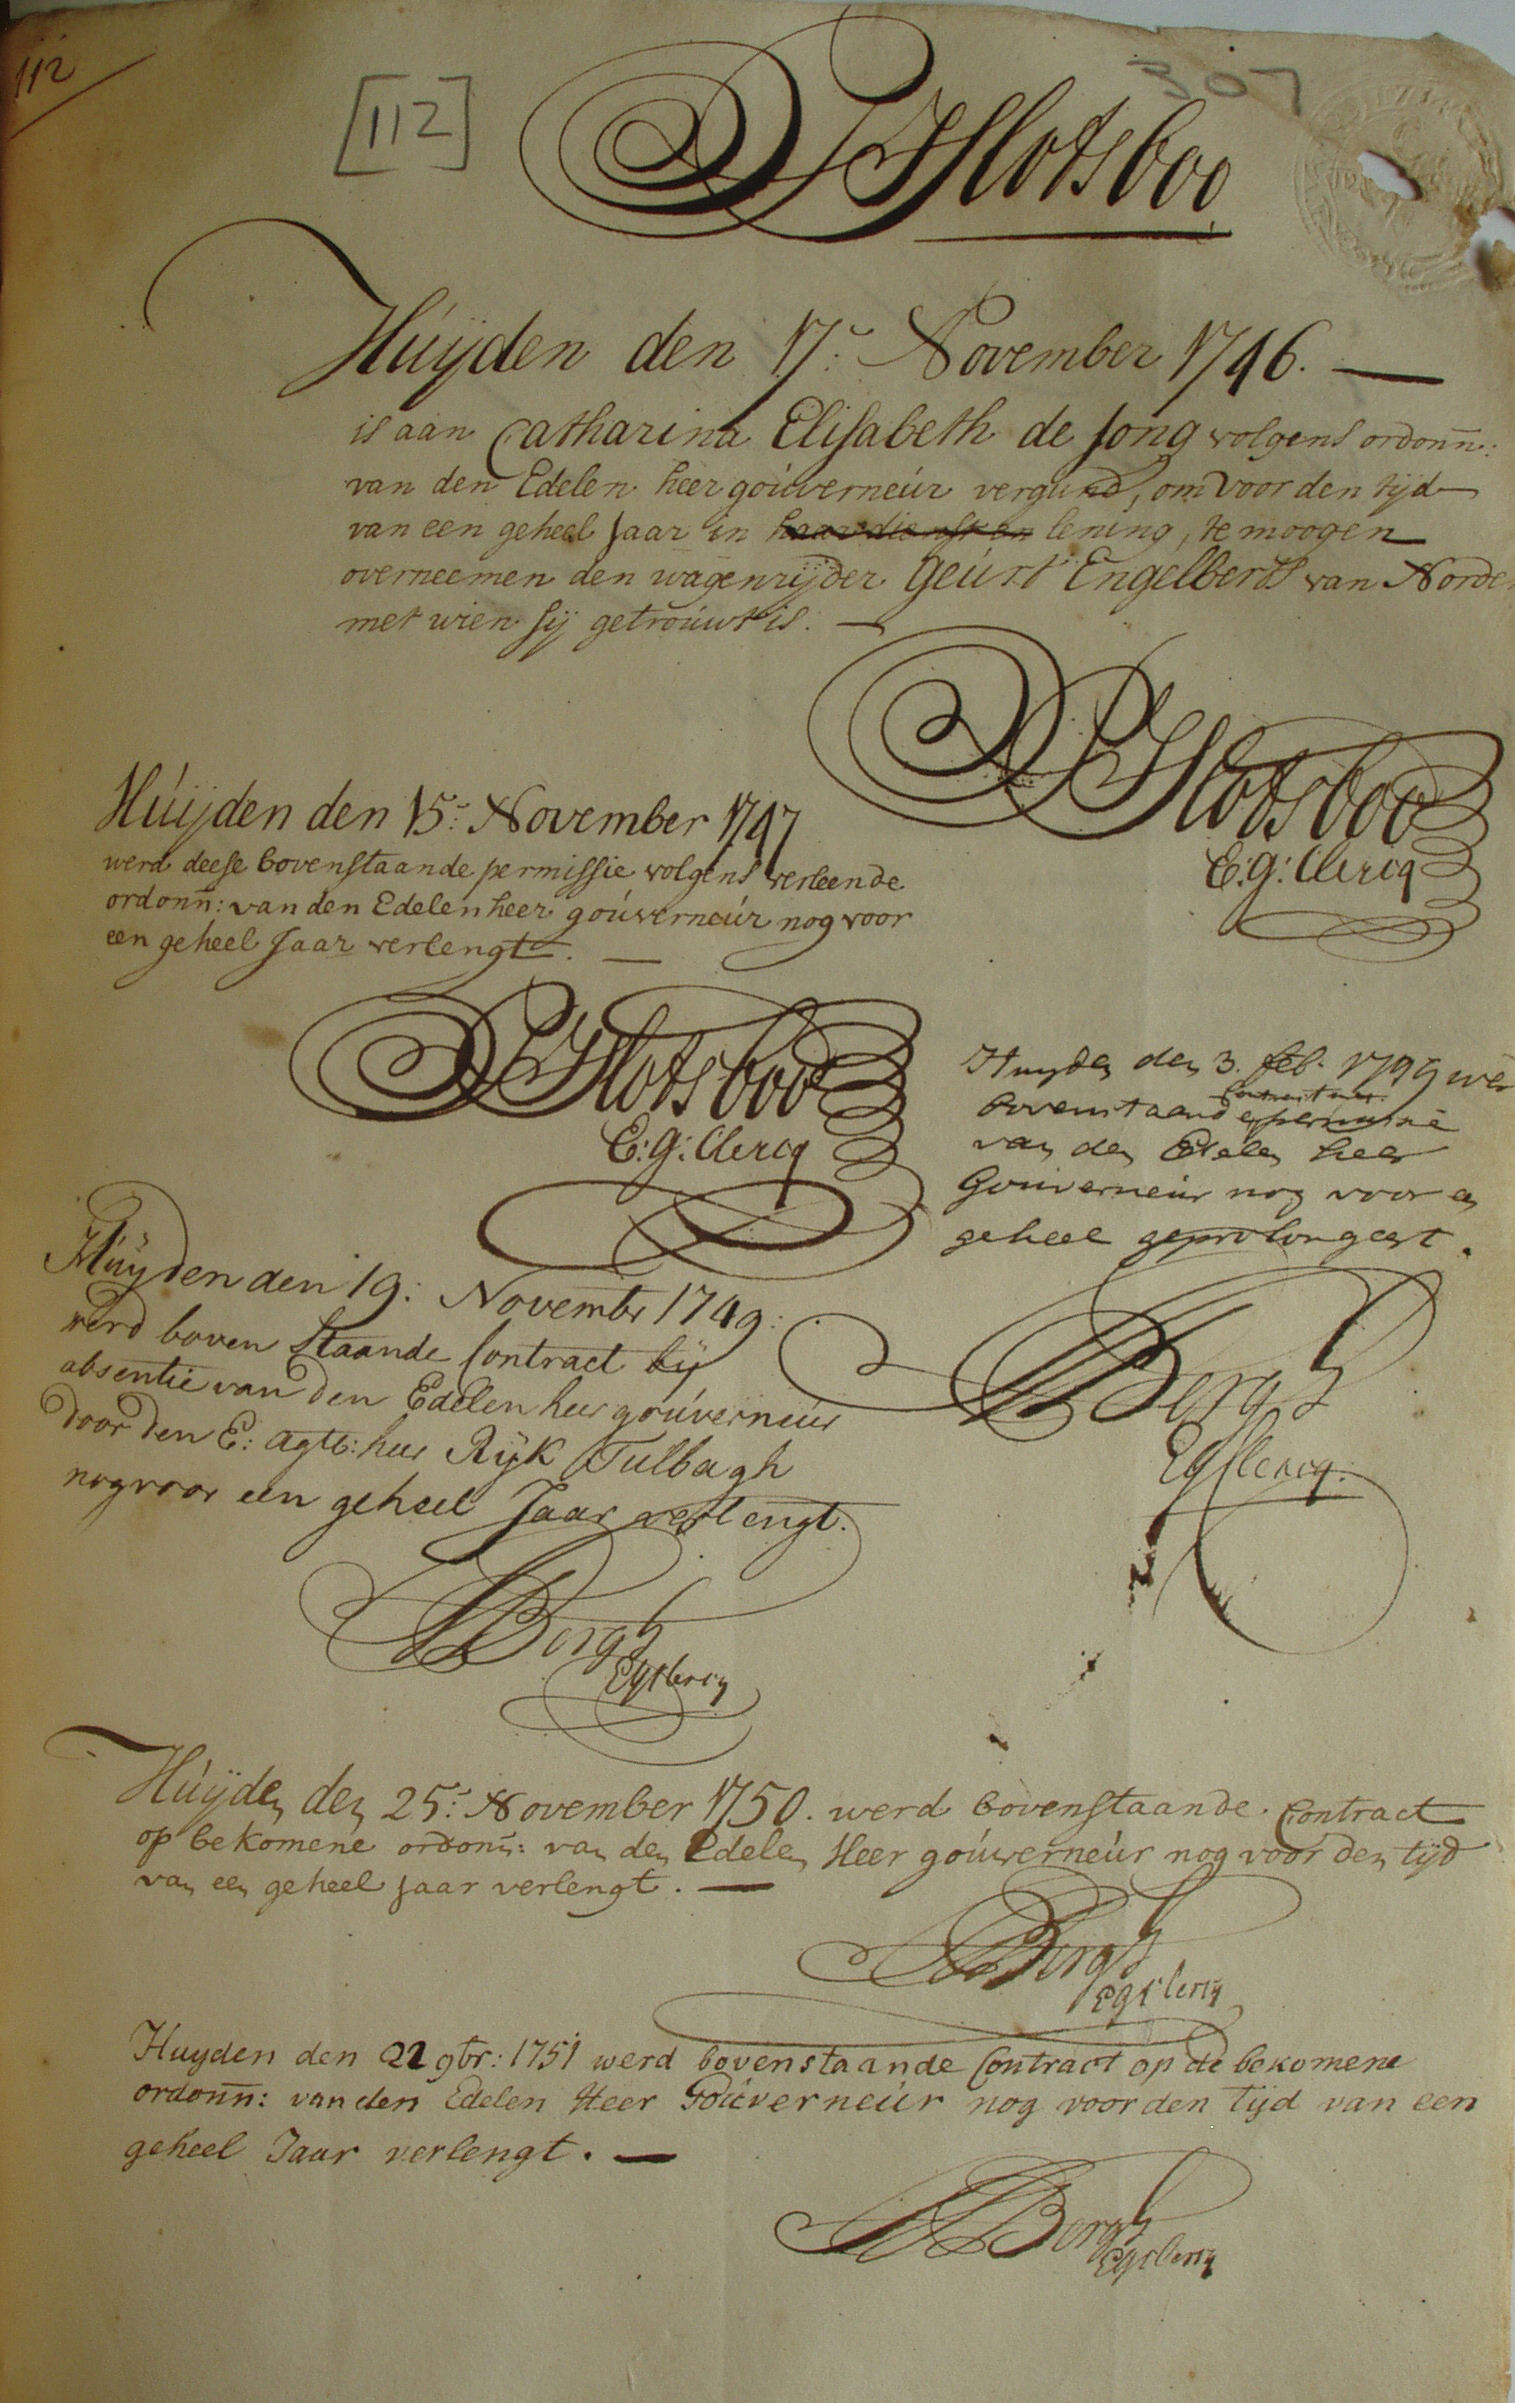 112
[112]
307
P Slotsboo
Húijden den 17:e November 1746.
is aan Catharina Elisabeth de Jong volgens ordonn:
van den Edelen heer goúverneúr vergund, om voor den tijd
van een geheel Jaar in haar dienst en lening, te moogen
overneemen den wagenrijder Geúrt Engelberts van Norde
met wien sij getroúwt is.
P Slotsboo
E: G: Clercq
Húijden den 15:e November 1747
werd deese bovenstaande permissie volgens verleende
ordonn: van den Edelen heer goúverneúr nog voor
een geheel Jaar verlengt.
P Slotsboo
E: G: Clercq
Huyden den 3. feb. 1749 wer
bovenstaande permissie
van den Edelen heer
Gouverneur nog voor en
geheel geprolongeert.
Bergh
EGClercq.
Húijden den 19: Novembr 1749:
werd boven staande Contract bij
absentie van den Edelen heer goúverneúr
door den E: agtb: heer Rijk Tulbagh
nog voor een geheel Jaar verlengt.
Bergh
EGClercq
Húijden den 25:e November 1750. werd bovenstaande Contract
op bekomene ordonn: van den Edelen Heer goúverneúr nog voor den tijd
van een geheel jaar verlengt.
Bergh
EGClercq
Huyden den 22 9br: 1751 werd bovenstaande Contract op de bekomene
ordonn: van den Edelen Heer Goúverneúr nog voor den tijd van een
geheel Jaar verlengt.
Bergh
EGClercq